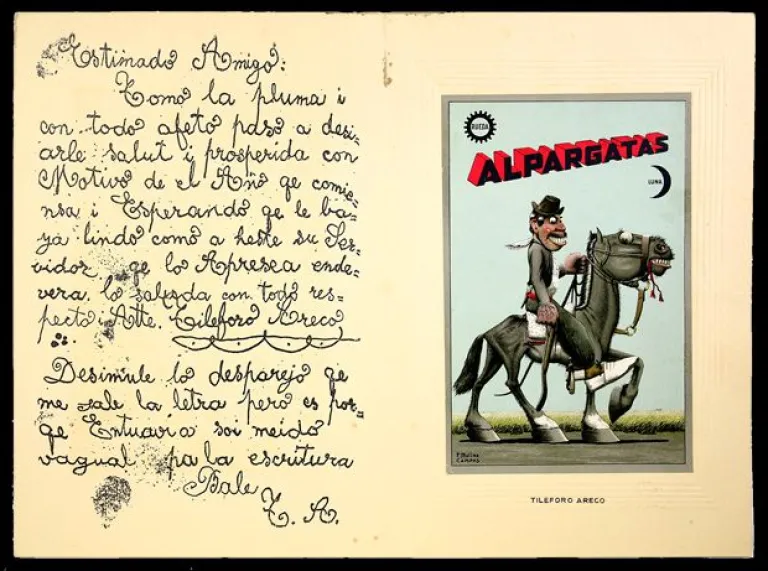 Estimado Amigo:
Tomo la pluma i
con todo afeto paso a desi=
arle salut i prosperida con
Motivo de el Año qe comie=
nsa i Esperando qe le ba=
ya lindo como a heste su Ser=
vidor qe lo Apresea ende=
vera, lo saluda con todo res=
pecto. Atte. Tileforo Areco
Desimule lo desparejo qe
me sale la letra pero es por=
qe Entuavia soi meido
vagual pa la escritura
Bale
T. A.
RUEDA
ALPARGATAS
LUNA
F. Molina
Campos
TILEFORO ARECO